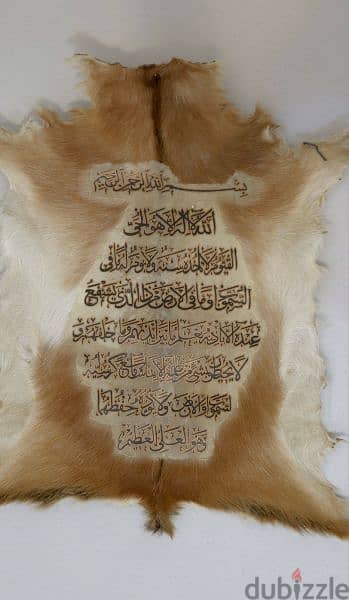 بسم الله الرحمن الرحيم
الله لا اله الا هو الحي
القيوم لا تاخذه سنة ولا نوم له ما في
السموات وما في الارض من ذا الذي يشفع
عنده الا باذنه يعلم ما بين ايديهم وما خلفهم و
لا يحيطون بشيء من علمه الا بما شاء وسع كرسيه
السموات والارض ولا يؤده حفظهما
وهو العلي العظيم
dubizzle